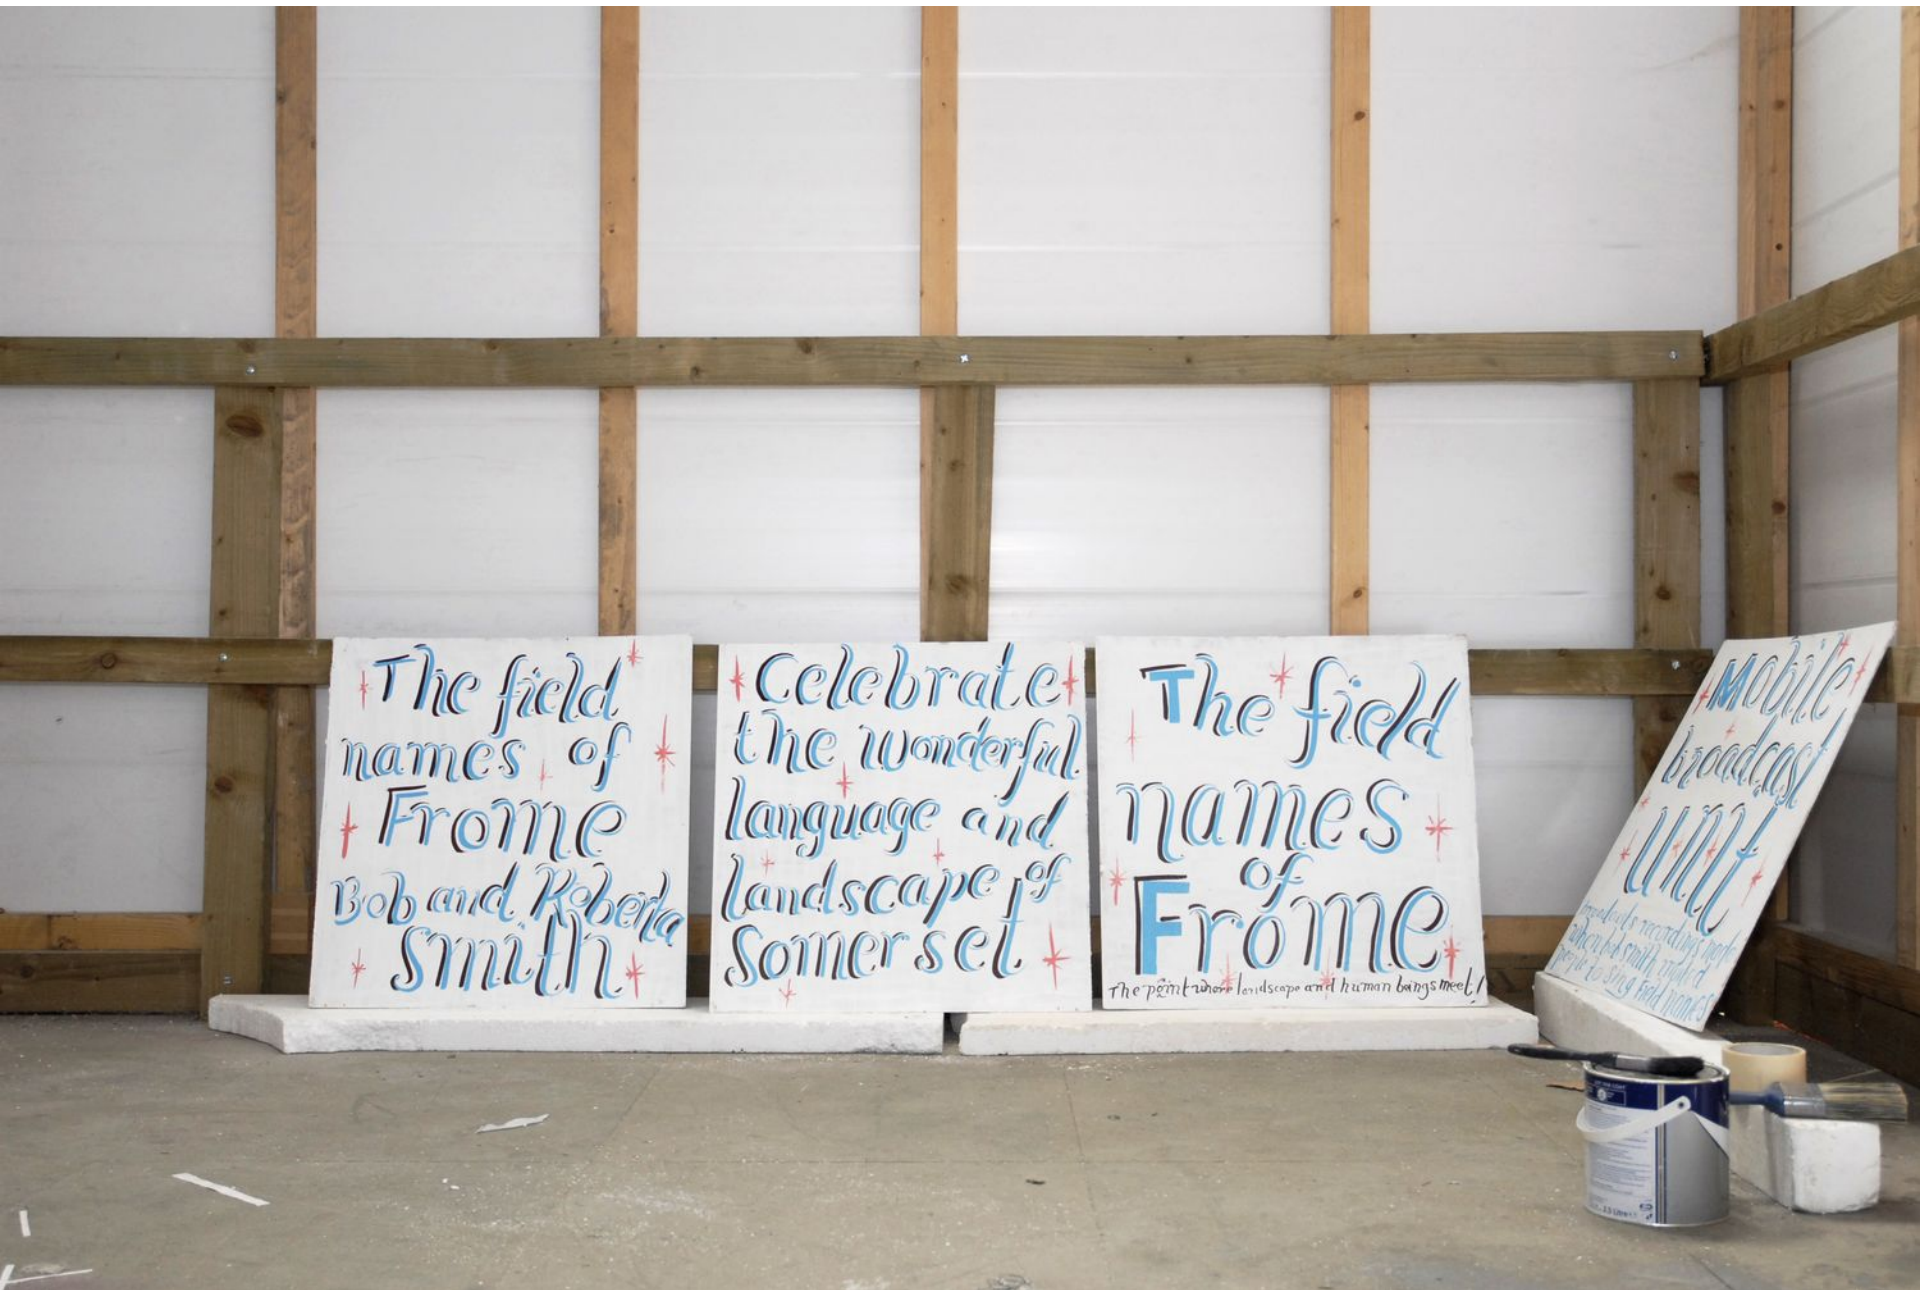 The field
names of
Frome
Bob and Roberta
Smith
Celebrate
the wonderful
language and
landscape of
Somerset
The field
names
of
Frome
The point where landscape and human beings meet!
Mobile
broadcast
unit
broadcasts recordings made
when bob smith invited
people to sing field names
2.5 Litre